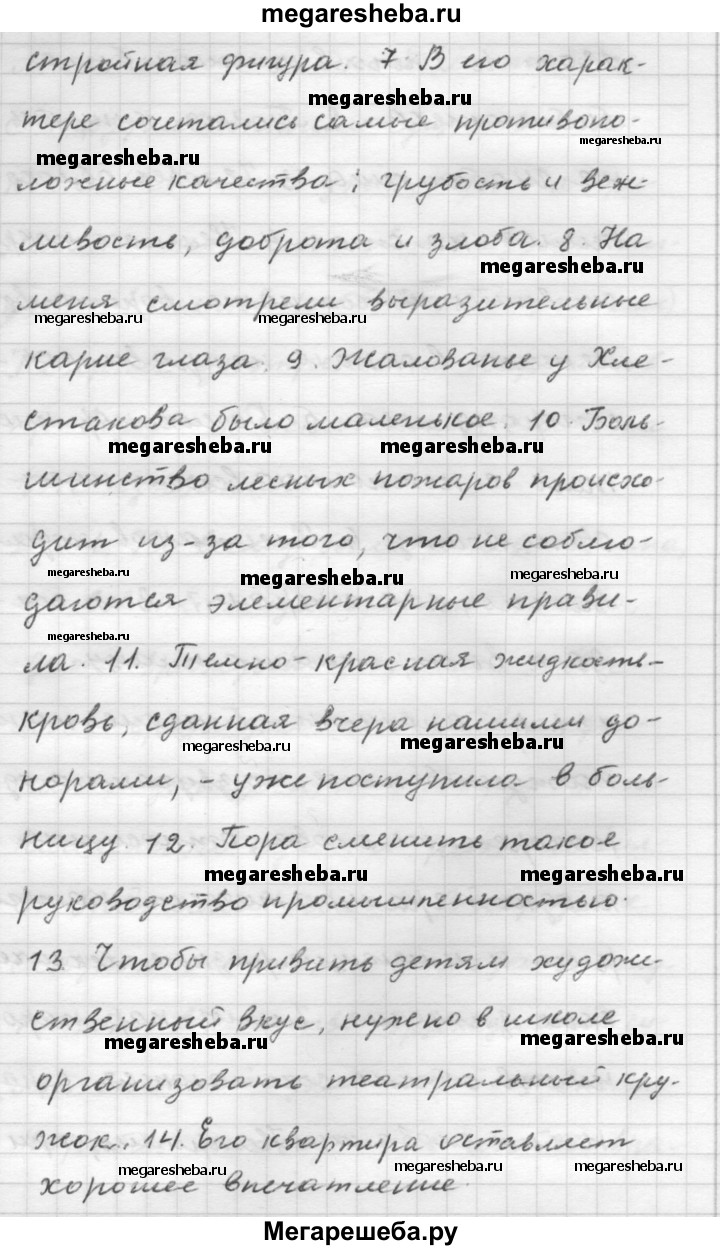 megaresheba.ru
стройная фигура. 7 В его харак-
megaresheba.ru
тере сочетались самые противопо-
megaresheba.ru
megaresheba.ru
ложные качества; грубость и веж-
ливость, доброта и злоба. 8. На
megaresheba.ru
меня смотрели выразительные
megaresheba.ru megaresheba.ru
карие глаза. 9. Жалованье у Хле-
стакова было маленькое. 10. Боль-
megaresheba.ru megaresheba.ru
шинство лесных пожаров происхо-
дит из-за того, что не соблю-
megaresheba.ru megaresheba.ru megaresheba.ru
даются элементарные прави-
megaresheba.ru
ла. 11. Темно-красная жидкость-
кровь, сданная вчера нашими до-
megaresheba.ru megaresheba.ru
норами, - уже поступила в боль-
ницу. 12. Пора сменить такое
megaresheba.ru megaresheba.ru
руководство промышленностью.
13. Чтобы привить детям художи-
ственный вкус, нужно в школе
megaresheba.ru megaresheba.ru
организовать театральный кру-
жок. 14. Его квартира оставляет
megaresheba.ru megaresheba.ru megaresheba.ru
хорошее впечатление.
Мегарешеба.ру